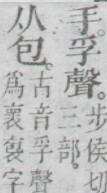 手。孚聲。
步侯切
三部。
从包。
古音孚聲
爲褱袌字